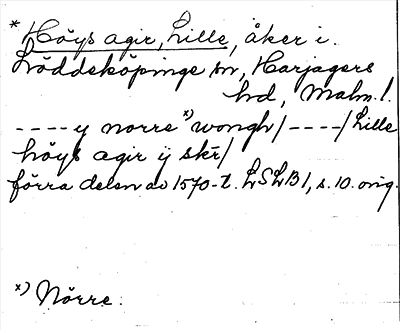 * Höys agir, Lille, åker i.
Löddeköpinge sn, Harjagers
hd, Malm. l.
---- y norre *) wongh/----/Lille
höys agir ij skr/
förra delen av 1570-t. LSLB 1, s. 10. orig.
*) Nörre.